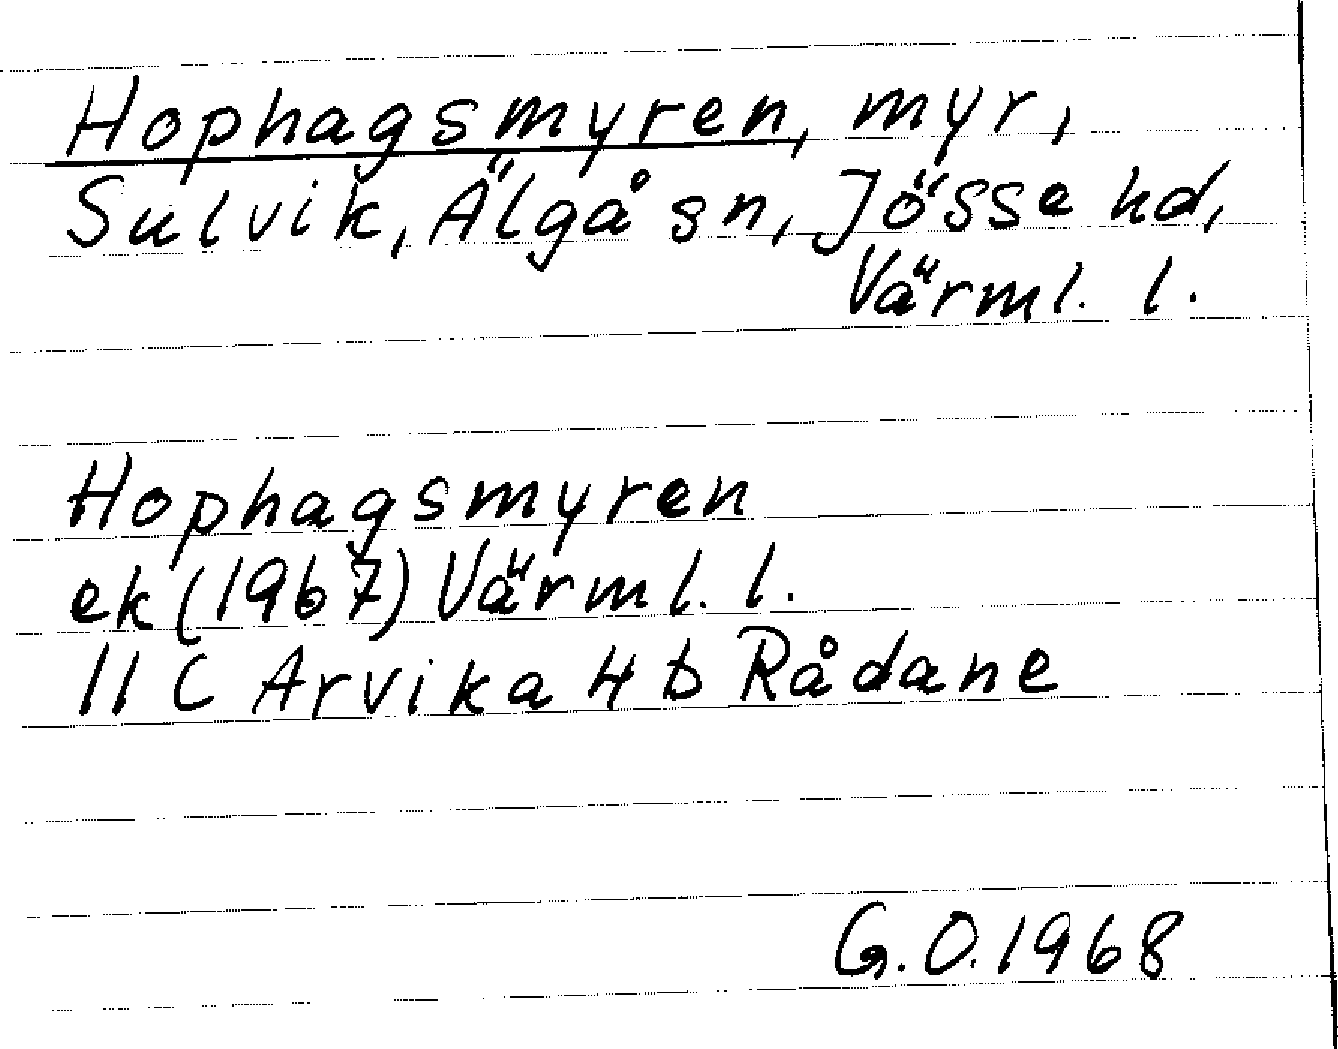 Hophagsmyren, myr,
Sulvik, Älgå sn, Jösse hd,
Värml. l.
Hophagsmyren
ek (1967) Värml. l.
11 C Arvika 4 b Rådane
G.O. 1968